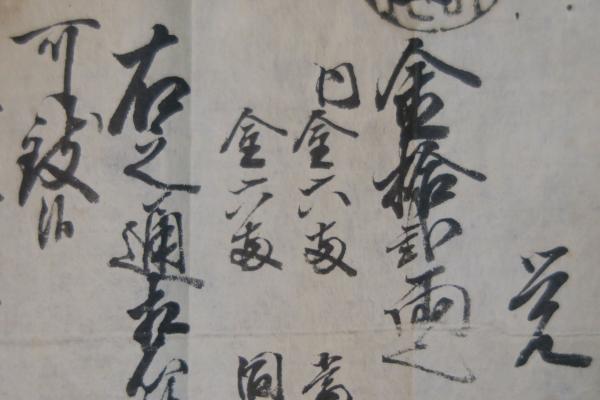 覚
金拾弐両也
内金六両 当
金六両 同
右之通相
可